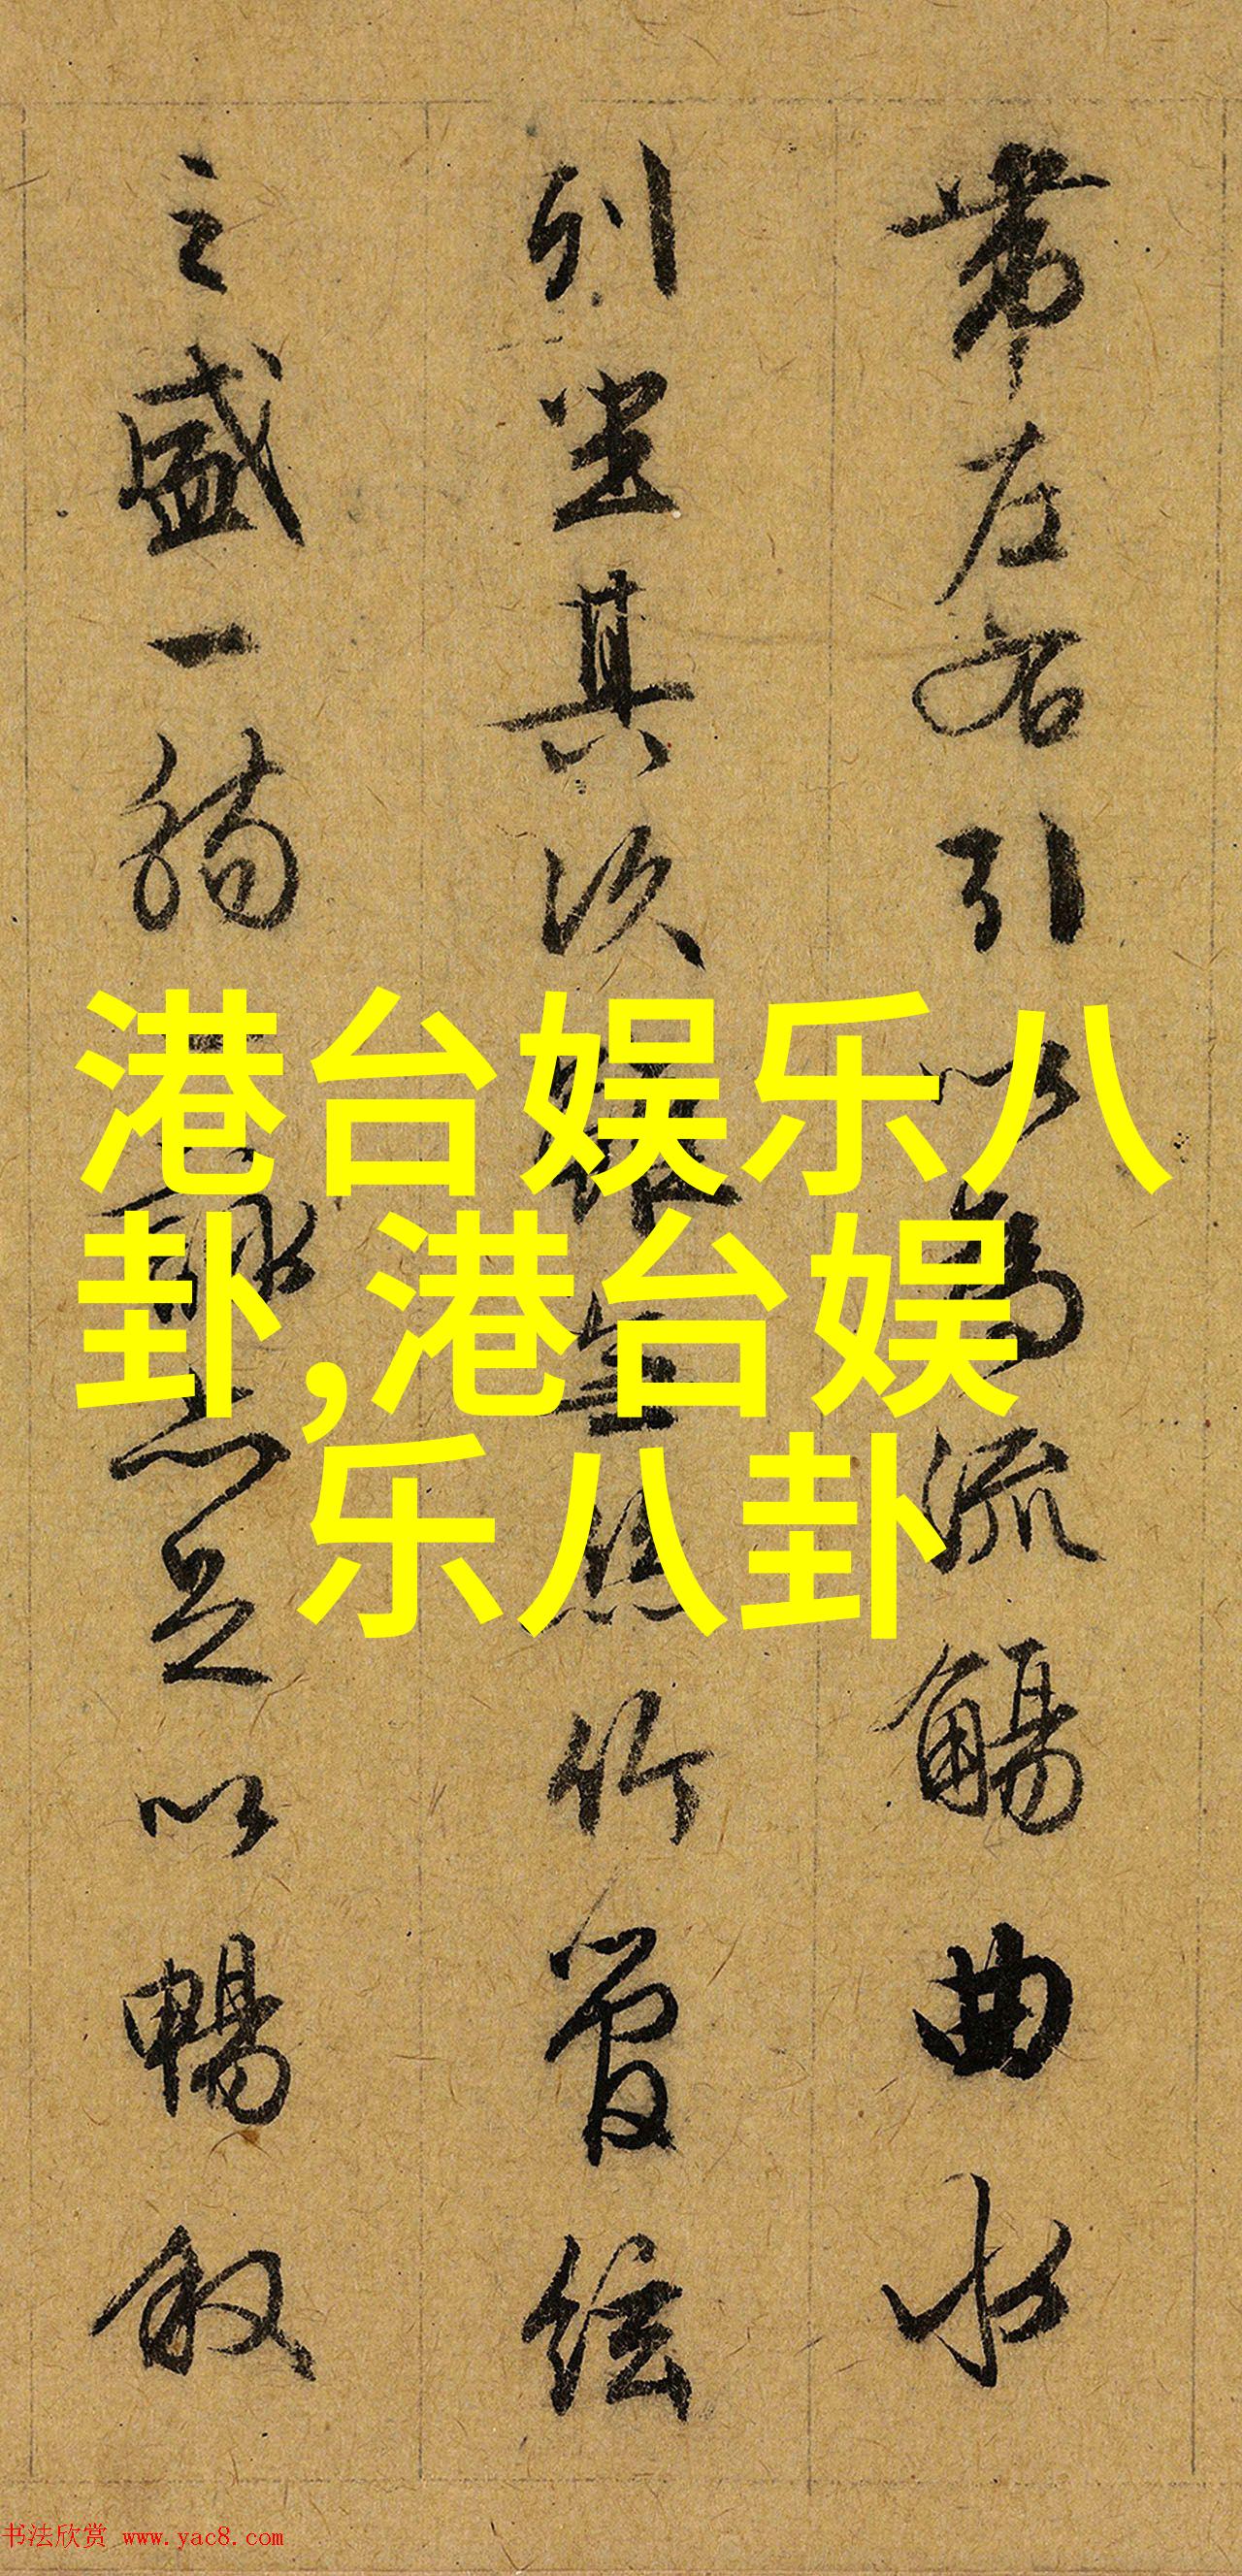 帶左右引以為流觴曲水
列坐其次雖無絲竹管絃
之盛一觴一詠亦足以暢敘
港台娱乐八
卦,港台娱
乐八卦
书法欣赏 www.yac8.com